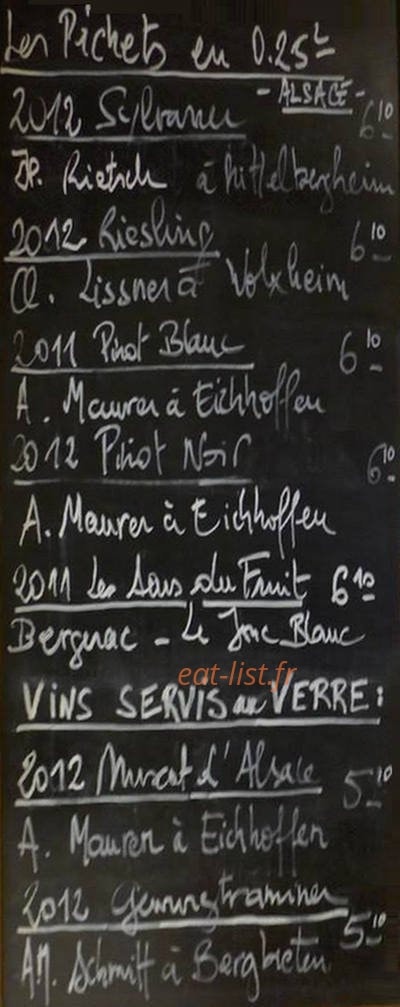 Les Pichets en 0.25L
- ALSACE -
2012 Sylvaner 6 10
JP. Rietsch à Mittelbergheim
2012 Riesling 6 10
Cl. Lissner à Wolxheim
2011 Pinot Blanc 6 10
A. Maurer à Eichhoffen
2012 Pinot Noir 6 10
A. Maurer à Eichhoffen
2011 Les Sens du Fruit 6 10
Bergerac - Le Jonc Blanc
eat-list.fr
VINS SERVIS au VERRE :
2012 Muscat d'Alsace 5 10
A. Maurer à Eichhoffen
2012 Gewurztraminer 5 10
AM. Schmitt à Bergbieten